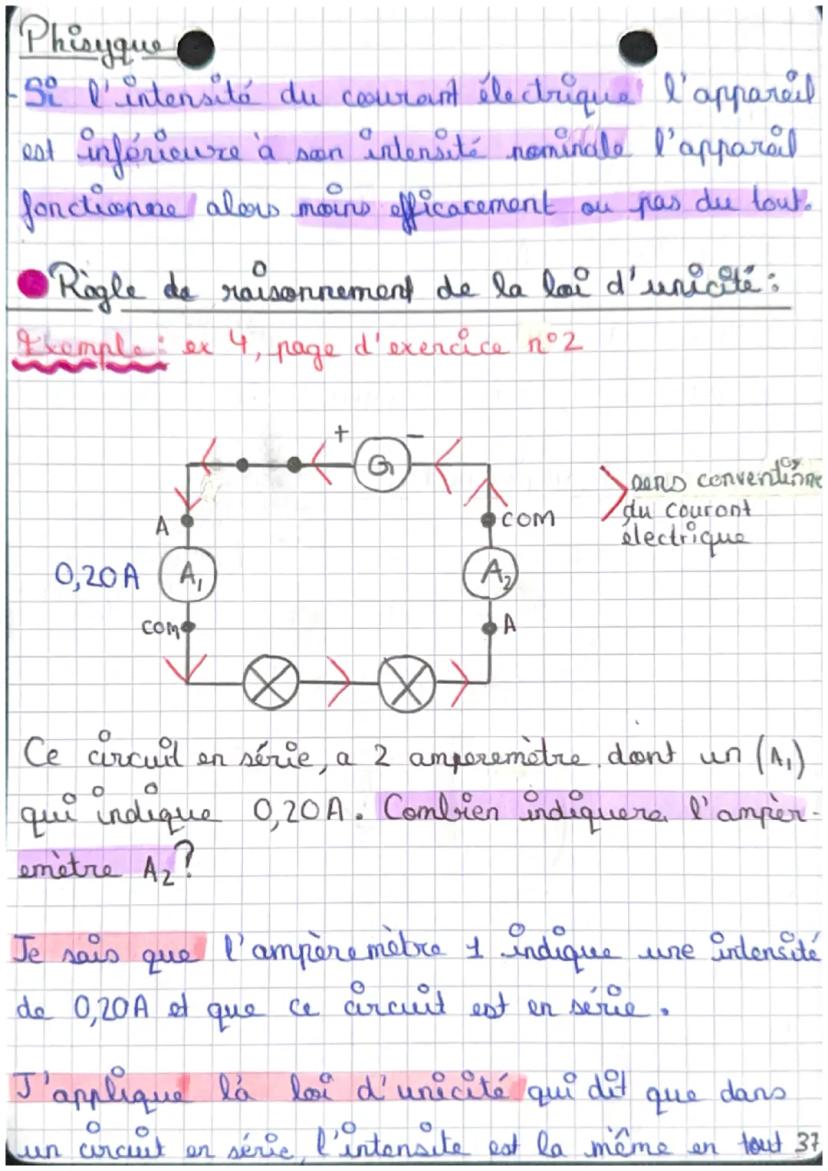 Phisyque
- Si l'intensité du courant électrique l'appareil
est inférieure à son intensité nominale l'appareil
fonctionne alors moins efficacement ou pas du tout.
Règle de raisonnement de la loi d'unicité :
Exemple : ex 4, page d'exercice n°2
+ G -
A COM
0,20A A₁ A₂
COM A
> sens conventionne
du couront
électrique
Ce circuit en série, a 2 amperemètre dont un (A₁)
qui indique 0,20A. Combien indiquera l'ampèr-
emètre A₂?
Je sais que l'ampèremètre 1 indique une intensité
de 0,20A et que ce circuit est en série.
J'applique là loi d'unicité qui dit que dans
un circuit en série, l'intensite est la même en tout 37